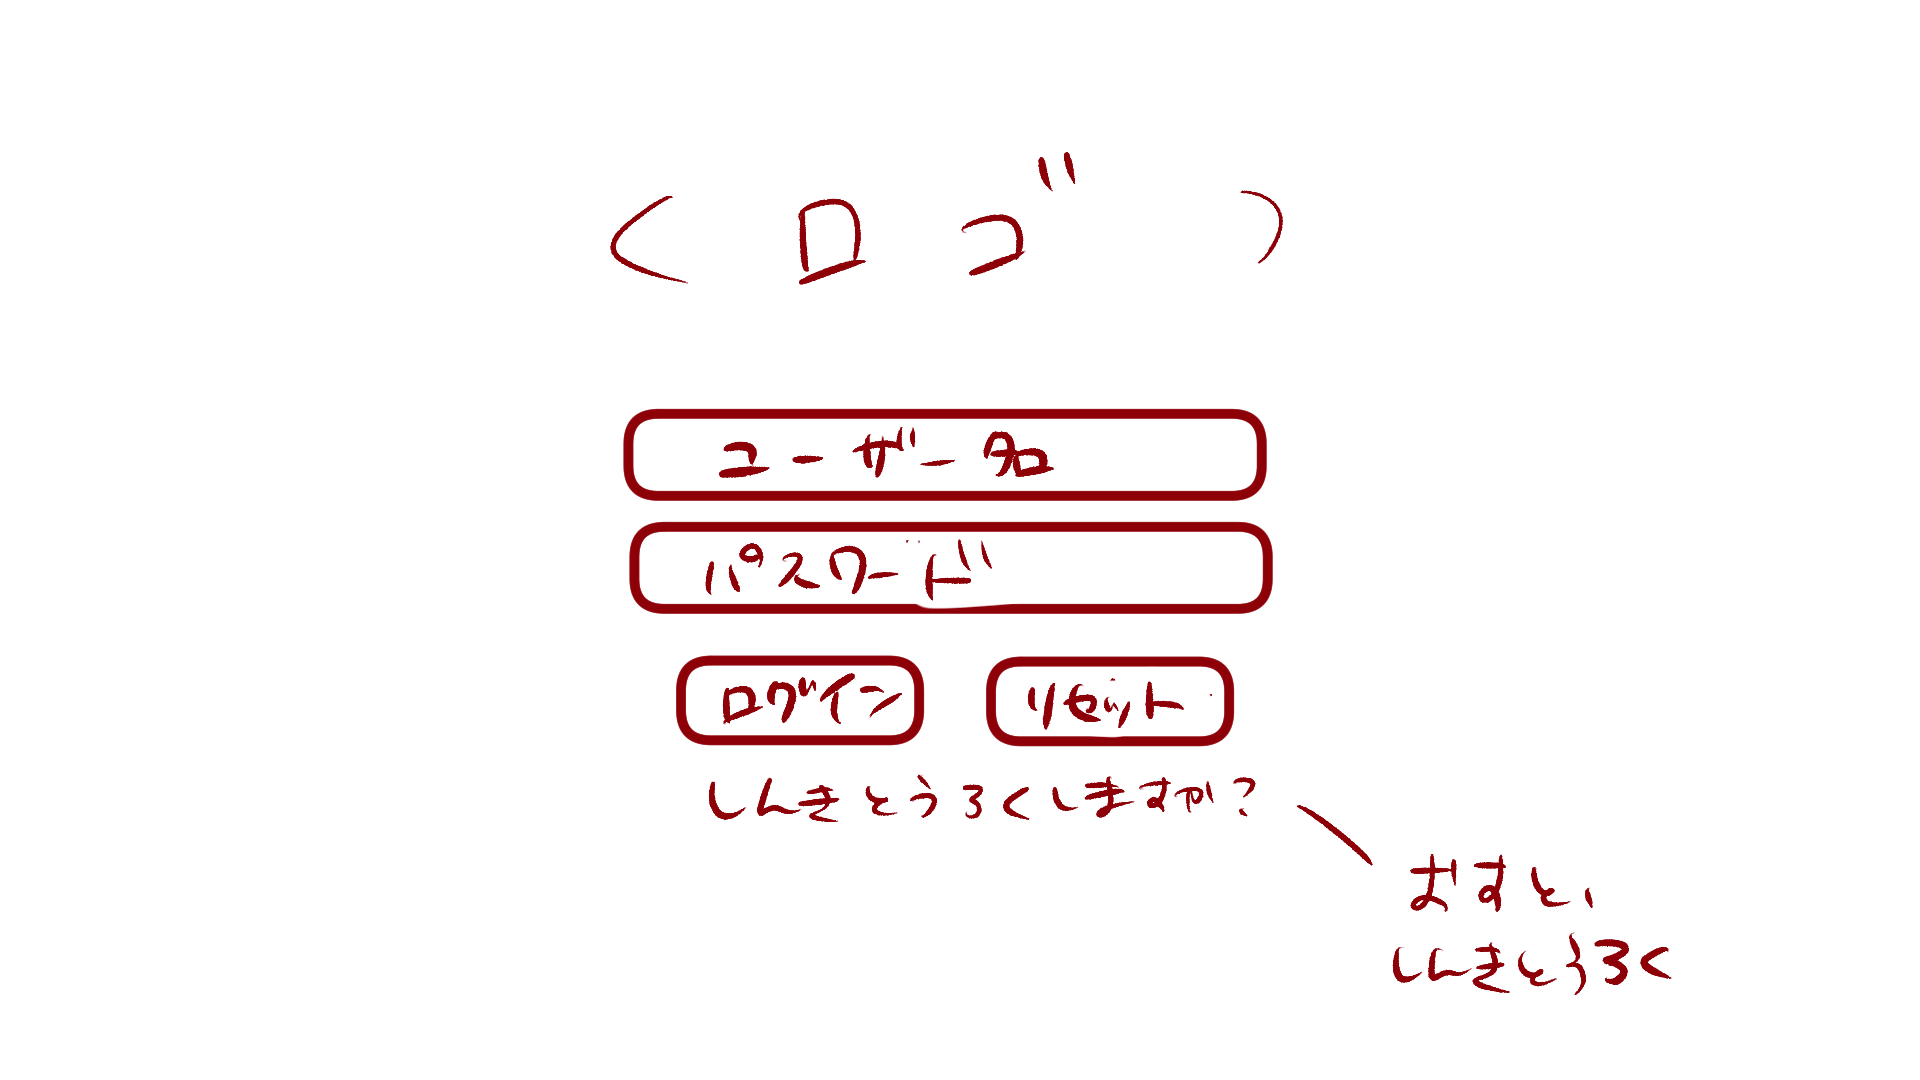 < ロゴ )
ユーザー名
パスワード
ログイン リセット
しんきとうろくしますか?
おすと、
しんきとうろく